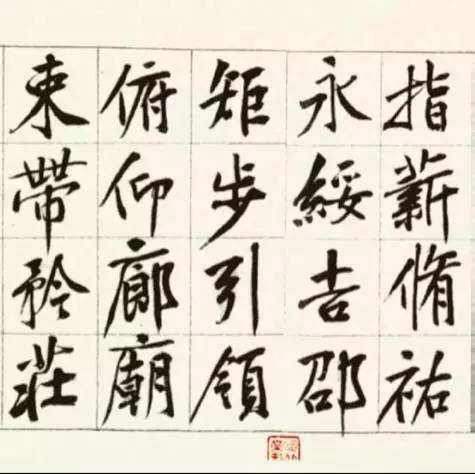 指薪脩祐
永綏吉邵
矩步引領
俯仰廊廟
束帶矜莊